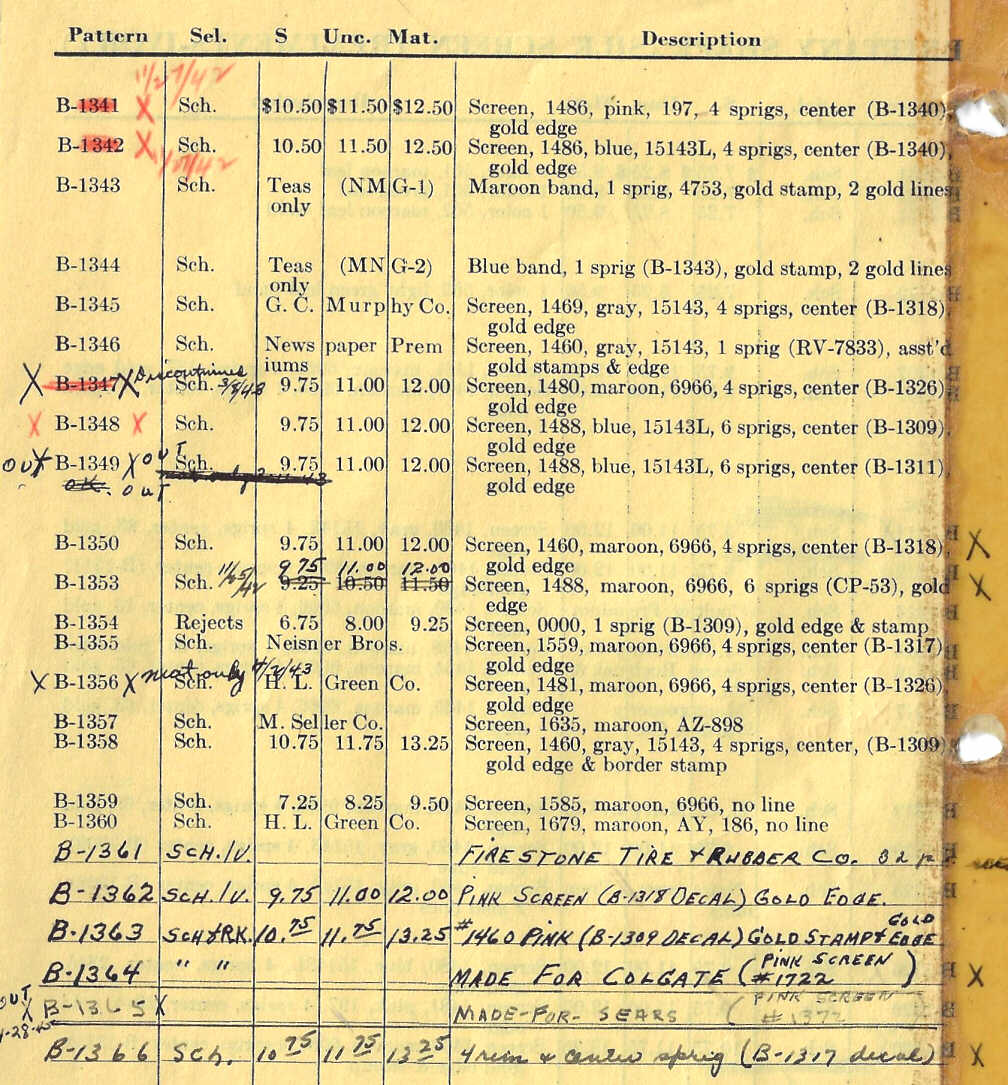 Pattern Sel. S Unc. Mat. Description
11/27/42
B-1341 X Sch. $10.50 $11.50 $12.50 Screen, 1486, pink, 197, 4 sprigs, center (B-1340),
gold edge
B-1342 X Sch. 10.50 11.50 12.50 Screen, 1486, blue, 15143L, 4 sprigs, center (B-1340),
11/27/42 gold edge
B-1343 Sch. Teas (NM G-1) Maroon band, 1 sprig, 4753, gold stamp, 2 gold lines
only
B-1344 Sch. Teas (MN G-2) Blue band, 1 sprig (B-1343), gold stamp, 2 gold lines
only
B-1345 Sch. G. C. Murphy Co. Screen, 1469, gray, 15143, 4 sprigs, center (B-1318),
gold edge
B-1346 Sch. News paper Prem Screen, 1460, gray, 15143, 1 sprig (RV-7833), asst'd
iums gold stamps & edge
X B-1347 X Discontinued Sch. 3/8/43 9.75 11.00 12.00 Screen, 1480, maroon, 6966, 4 sprigs, center (B-1326),
gold edge
X B-1348 X Sch. 9.75 11.00 12.00 Screen, 1488, blue, 15143L, 6 sprigs, center (B-1309),
gold edge
OUT X B-1349 X OUT Sch. 9.75 11.00 12.00 Screen, 1488, blue, 15143L, 6 sprigs, center (B-1311),
OK. OUT gold edge
B-1350 Sch. 9.75 11.00 12.00 Screen, 1460, maroon, 6966, 4 sprigs, center (B-1318), X
gold edge
9.75 11.00 12.00
B-1353 Sch. 9.25 10.50 11.50 Screen, 1488, maroon, 6966, 6 sprigs (CP-53), gold X
edge
B-1354 Rejects 6.75 8.00 9.25 Screen, 0000, 1 sprig (B-1309), gold edge & stamp
B-1355 Sch. Neisner Bros. Screen, 1559, maroon, 6966, 4 sprigs, center (B-1317),
gold edge
X B-1356 X mat only 4/2/43 Sch. H. L. Green Co. Screen, 1481, maroon, 6966, 4 sprigs, center (B-1326),
gold edge
B-1357 Sch. M. Seller Co. Screen, 1635, maroon, AZ-898
B-1358 Sch. 10.75 11.75 13.25 Screen, 1460, gray, 15143, 4 sprigs, center, (B-1309)
gold edge & border stamp
B-1359 Sch. 7.25 8.25 9.50 Screen, 1585, maroon, 6966, no line
B-1360 Sch. H. L. Green Co. Screen, 1679, maroon, AY, 186, no line
B-1361 SCH./V. FIRESTONE TIRE & RUBBER CO. 32 pc
B-1362 SCH./V. 9.75 11.00 12.00 PINK SCREEN (B-1318 DECAL) GOLD EDGE.
B-1363 SCH & RK. 10.75 11.75 13.25 #1460 PINK (B-1309 DECAL) GOLD STAMP & GOLD EDGE
B-1364 " " MADE FOR COLGATE (PINK SCREEN #1722) X
OUT X B-1365 X MADE-FOR- SEARS (PINK SCREEN #1372
B-1366 Sch. 10.75 11.75 13.25 4 rim & center sprig (B-1317 decal) X